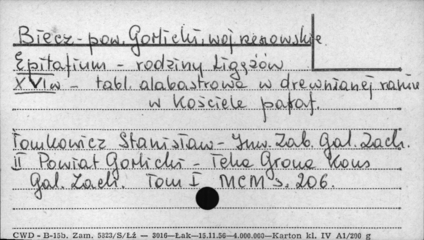 Biecz - pow. Gorlicki, woj. rzeszowskie
Epitafium - rodziny Ligęzów
XVI w - tabl. alabastrowa w drewnianej ramie
w Kościele paraf.
Tomkowicz Stanisław - Inw. Zab. Gal. Zach.
II Powiat Gorlicki - Teka Grona Kons
Gal. Zach. Tom I MCM s. 206.
CWD - B-15b. Zam. 5823/S/Łż — 3016—Łak—15.11.56—4.000.000—Karton kl. IV A1/200 g